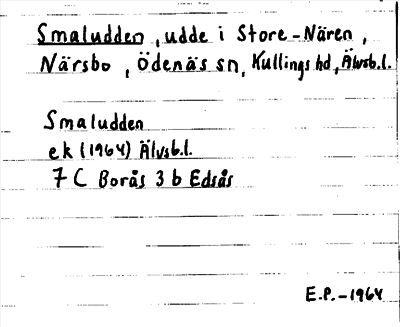 Smaludden, udde i Store-Nären,
Närsbo, Ödenäs sn, Kullings hd, Älvsb.l.
Smaludden
ek (1964) Älvsb.l.
7 C Borås 3 b Edsås
E.P.-1964